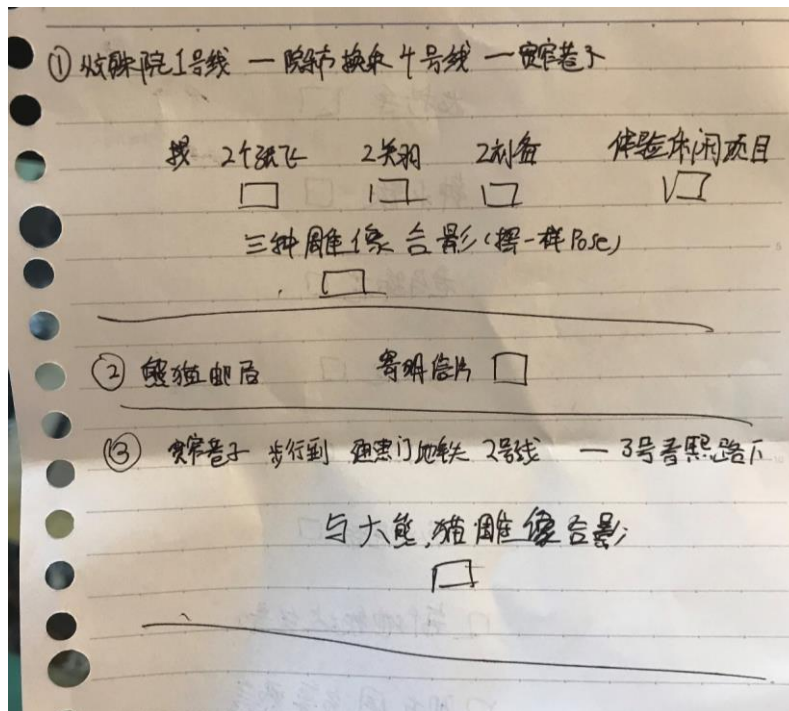 ① 文殊院1号线 — 骡马市换乘4号线 — 宽窄巷下
找 2个张飞 2关羽 2刘备 体验休闲项目
三种雕像合影(摆一样Pose)
② 熊猫邮局 寄明信片
③ 宽窄巷子 步行到 通惠门地铁 2号线 — 3号春熙路下
与大熊猫雕像合影